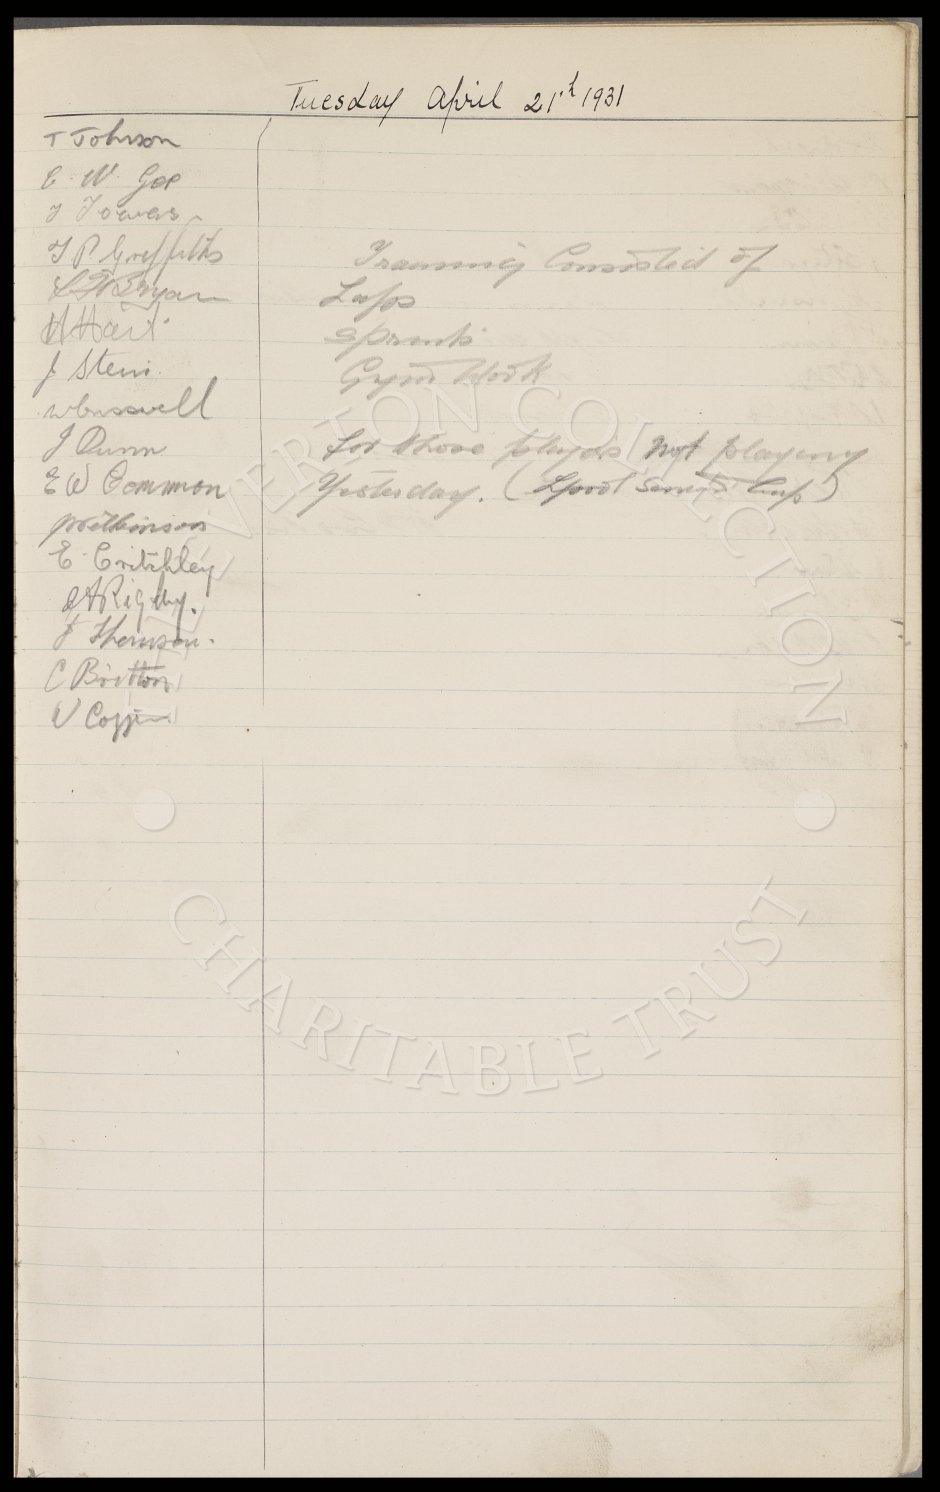 Tuesday April 21st 1931
T Johnson
E. W. Gee
J Towers
T P Griffiths
L F Bryan
H Hart
J Stein.
W Cresswell
J Dunn
E W Common
P Wilkinson
E. Critchley
A Rigby.
J Thomson.
C Britton
W Coggins
Training Consisted of
Laps
Sprints
Gym Work
for those players not playing
Yesterday. (Lpool Senior Cup)
THE EVERTON COLLECTION
CHARITABLE TRUST